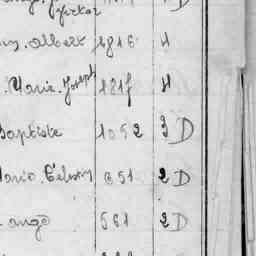 Albert 1816 H
. Marie. Joseph 181 H
Baptiste 1052 3 D
Marie. Célestin 651 2 D
ange 561 2 D